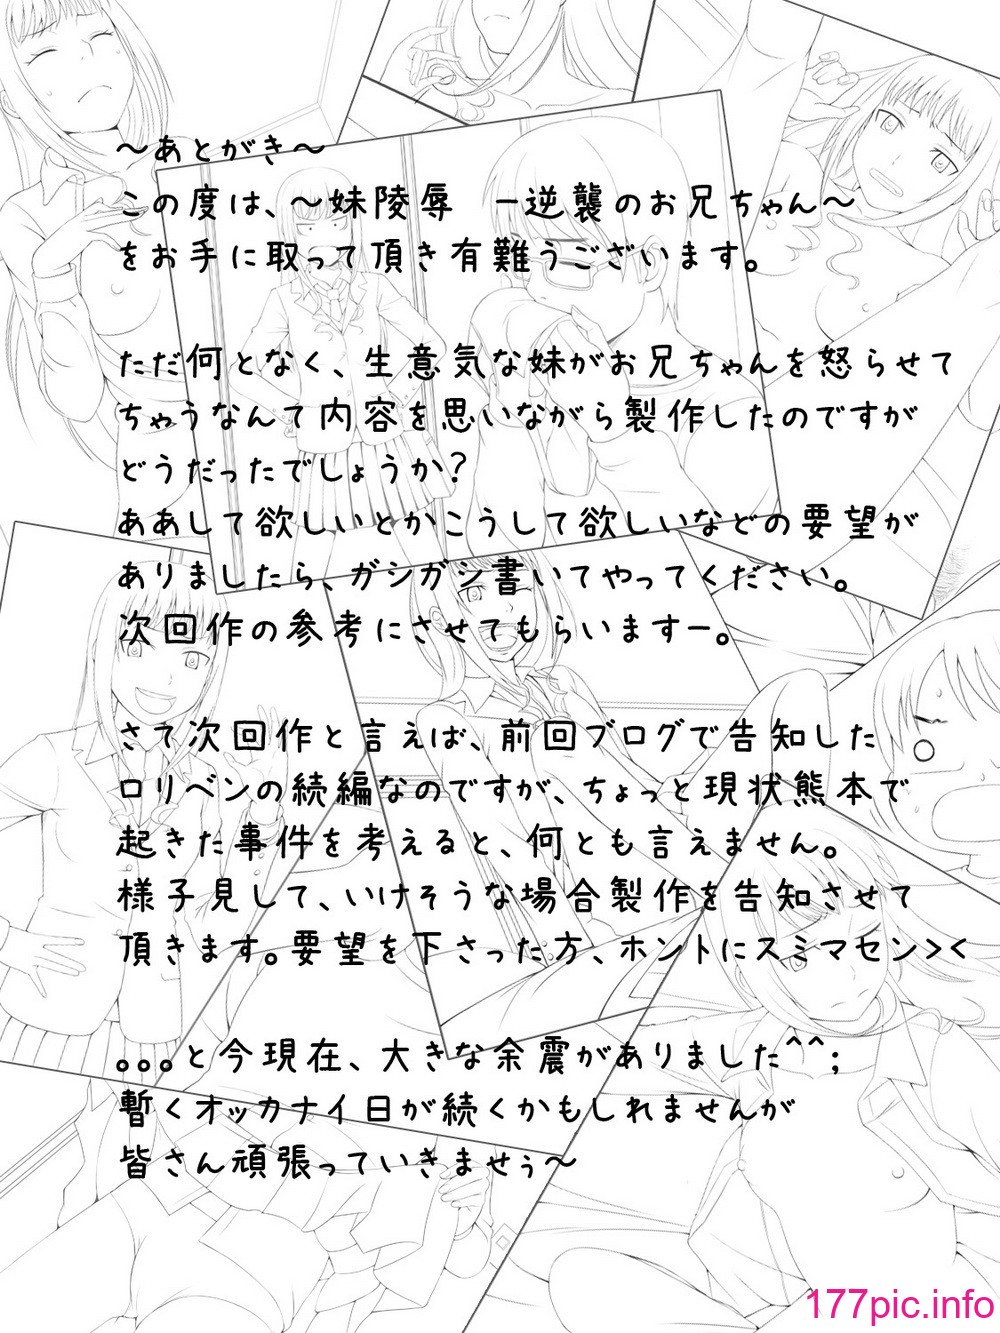 ～あとがき～
この度は、～妹陵辱　－逆襲のお兄ちゃん～
をお手に取って頂き有難うございます。
ただ何となく、生意気な妹がお兄ちゃんを怒らせて
ちゃうなんて内容を思いながら製作したのですが
どうだったでしょうか？
ああして欲しいとかこうして欲しいなどの要望が
ありましたら、ガシガシ書いてやってください。
次回作の参考にさせてもらいますー。
さて次回作と言えば、前回ブログで告知した
ロリベンの続編なのですが、ちょっと現状熊本で
起きた事件を考えると、何とも言えません。
様子見して、いけそうな場合製作を告知させて
頂きます。要望を下さった方、ホントにスミマセン><
。。。と今現在、大きな余震がありました^^;
暫くオッカナイ日が続くかもしれませんが
皆さん頑張っていきませぅ～
177pic.info